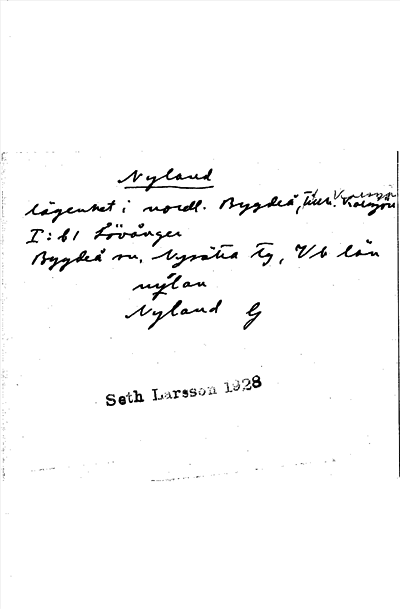 Nyland
lägenhet i nordl. Bygdeå, till
I:b1 Lövånger
Bygdeå sn, Nysätra tg, Vb län
nylan
Nyland G
Seth Larsson 1928